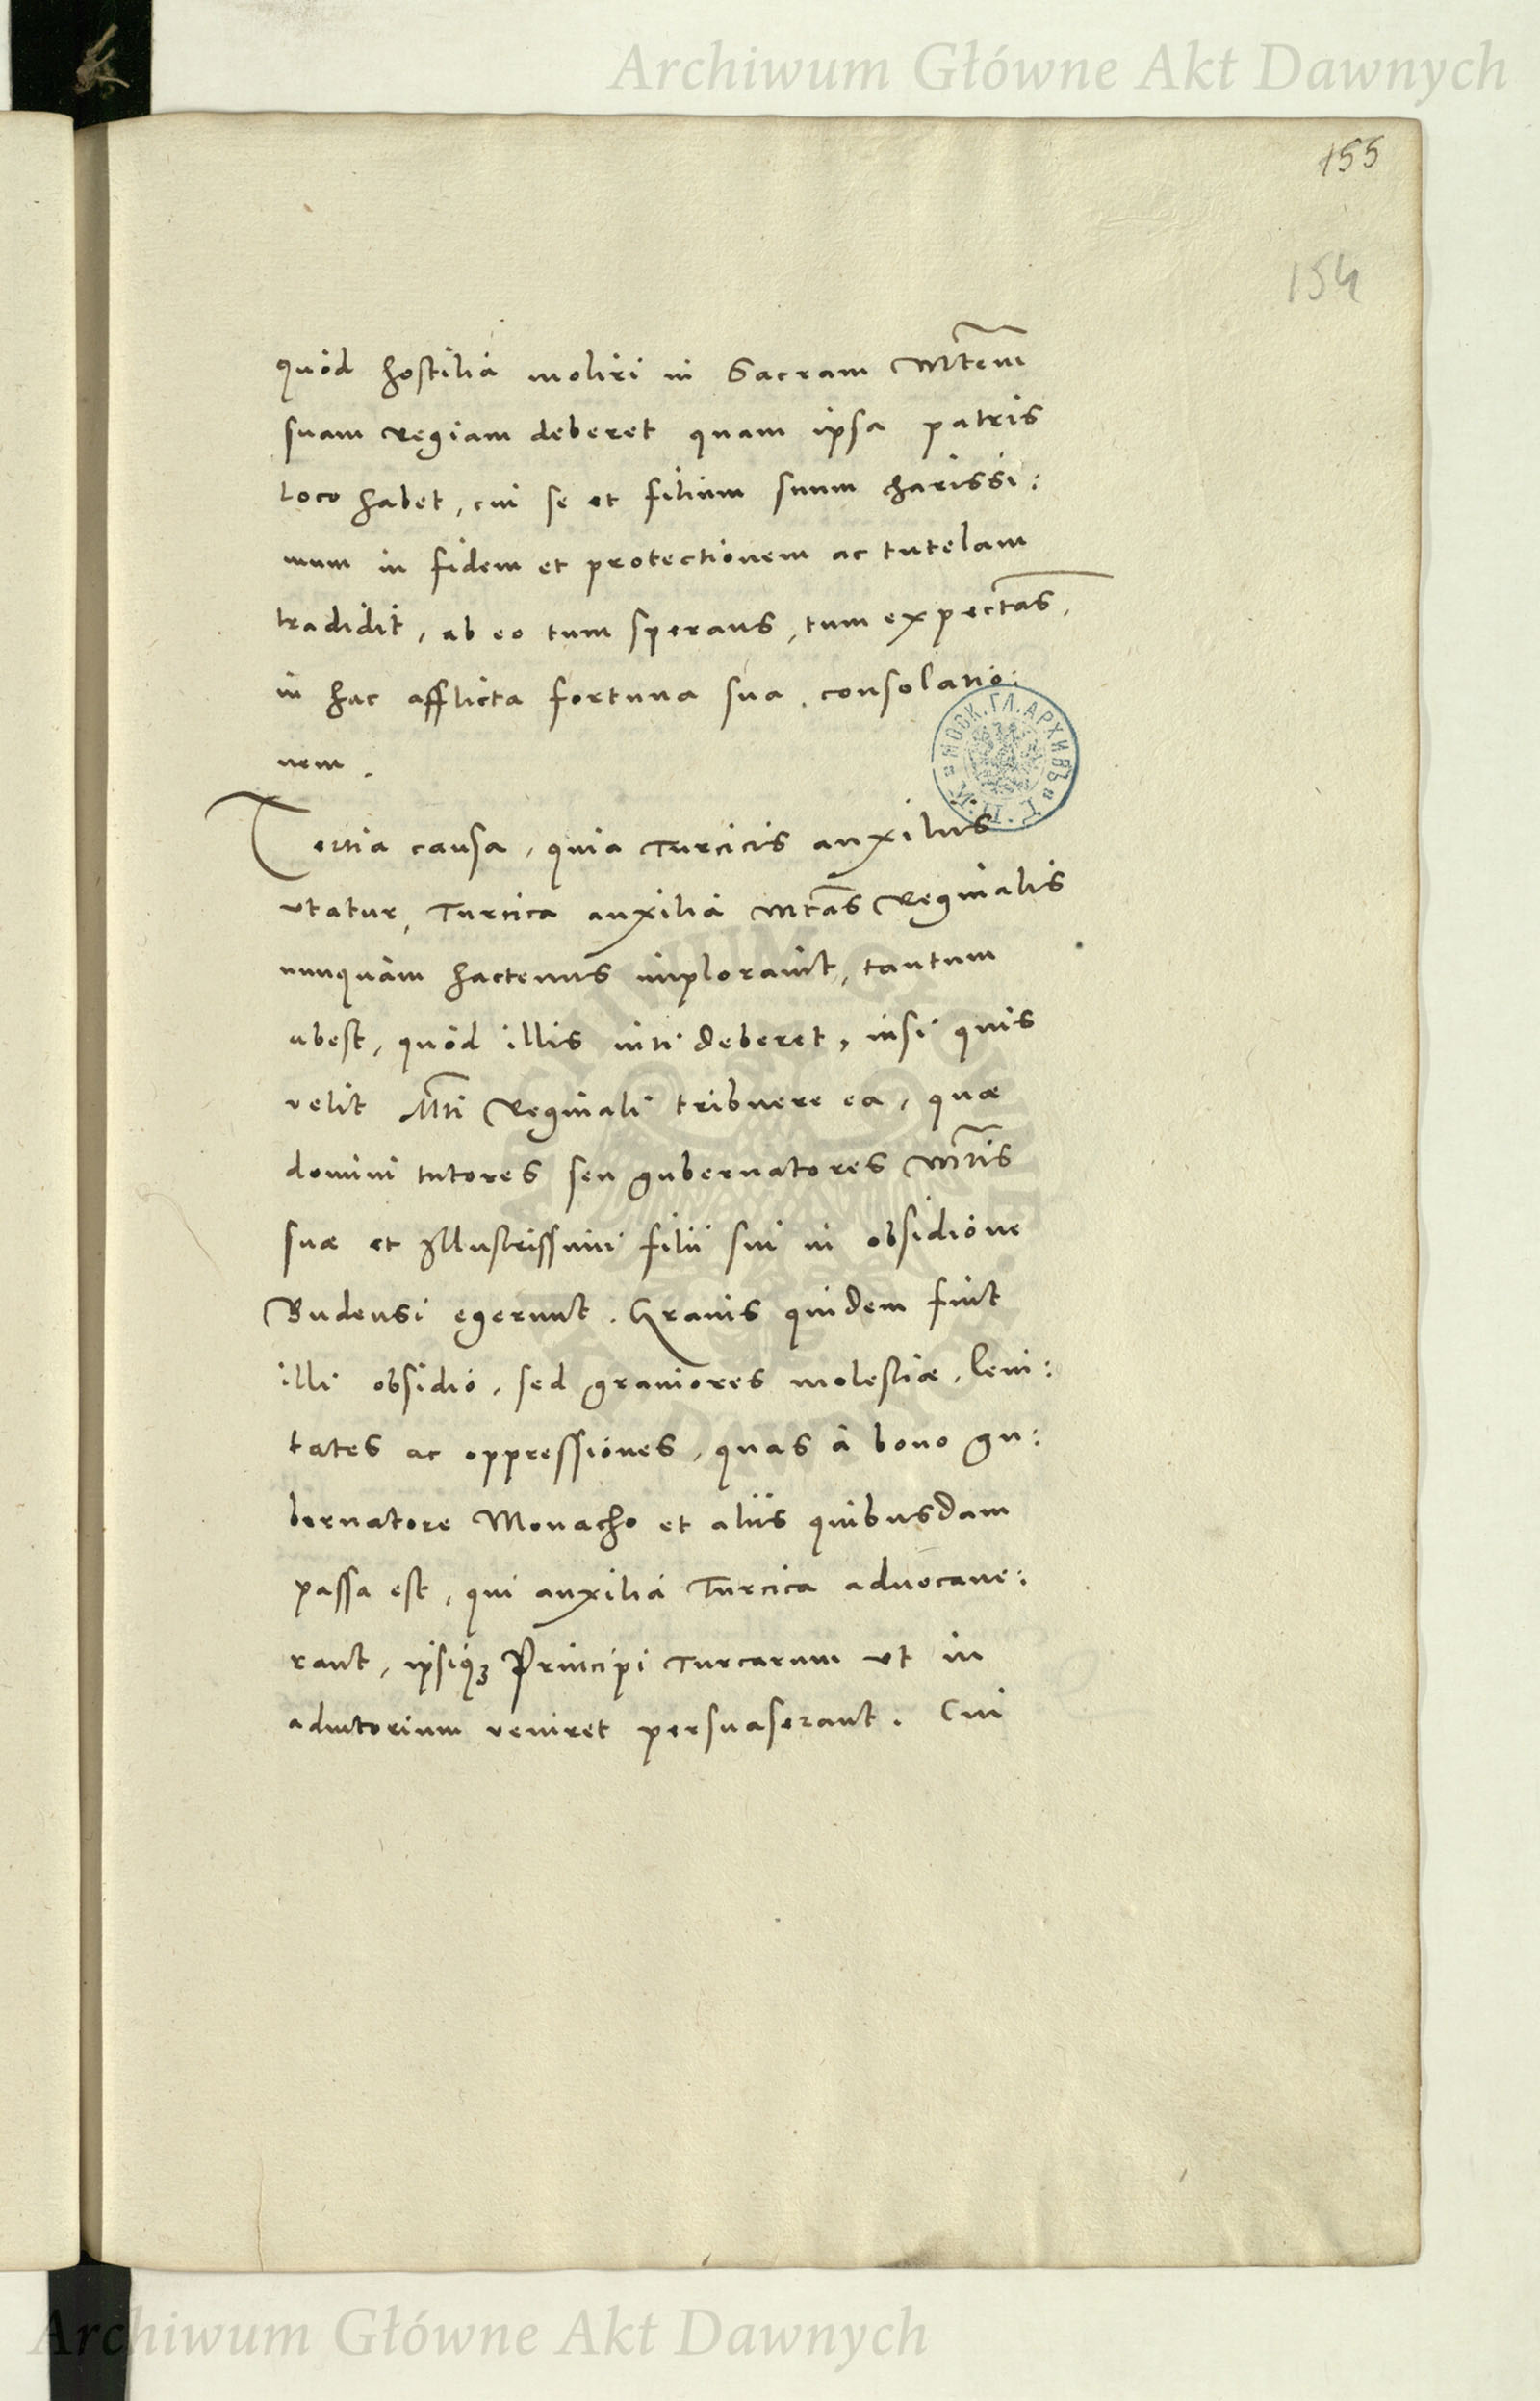 Archiwum Główne Akt Dawnych
155
154
quòd hostilia moliri in Sacram Mtem
suam Regiam deberet quam ipsa patris
loco habet, cui se et filium suum charissi:
mum in fidem et protectionem ac tutelam
tradidit, ab eo tum sperans, tum expectans,
in hac afflicta fortuna sua, consolatio:
nem.
Tertia causa, quia Turcicis auxilijs
utatur, Turcica auxilia Mtas Reginalis
nunquam hactenus implorauit, tantum
abest, quòd illis niti deberet, nisi quis
velit Mti Reginali tribuere ea, quæ
domini tutores seu gubernatores Mtis
suæ et Illustrissimi filii sui in obsidione
Budensi egerunt. Grauis quidem fuit
illi obsidio, sed grauiores molestiæ, leui:
tates ac oppressiones, quas à bono gu:
bernatore Monacho et aliis quibusdam
passa est, qui auxilia Turcica aduocaue:
rant, ipsiq3 Principi Turcarum ut in
adiutorium veniret persuaserant. Cui
МОСК. ГЛ. АРХИВЪ
Archiwum Główne Akt Dawnych